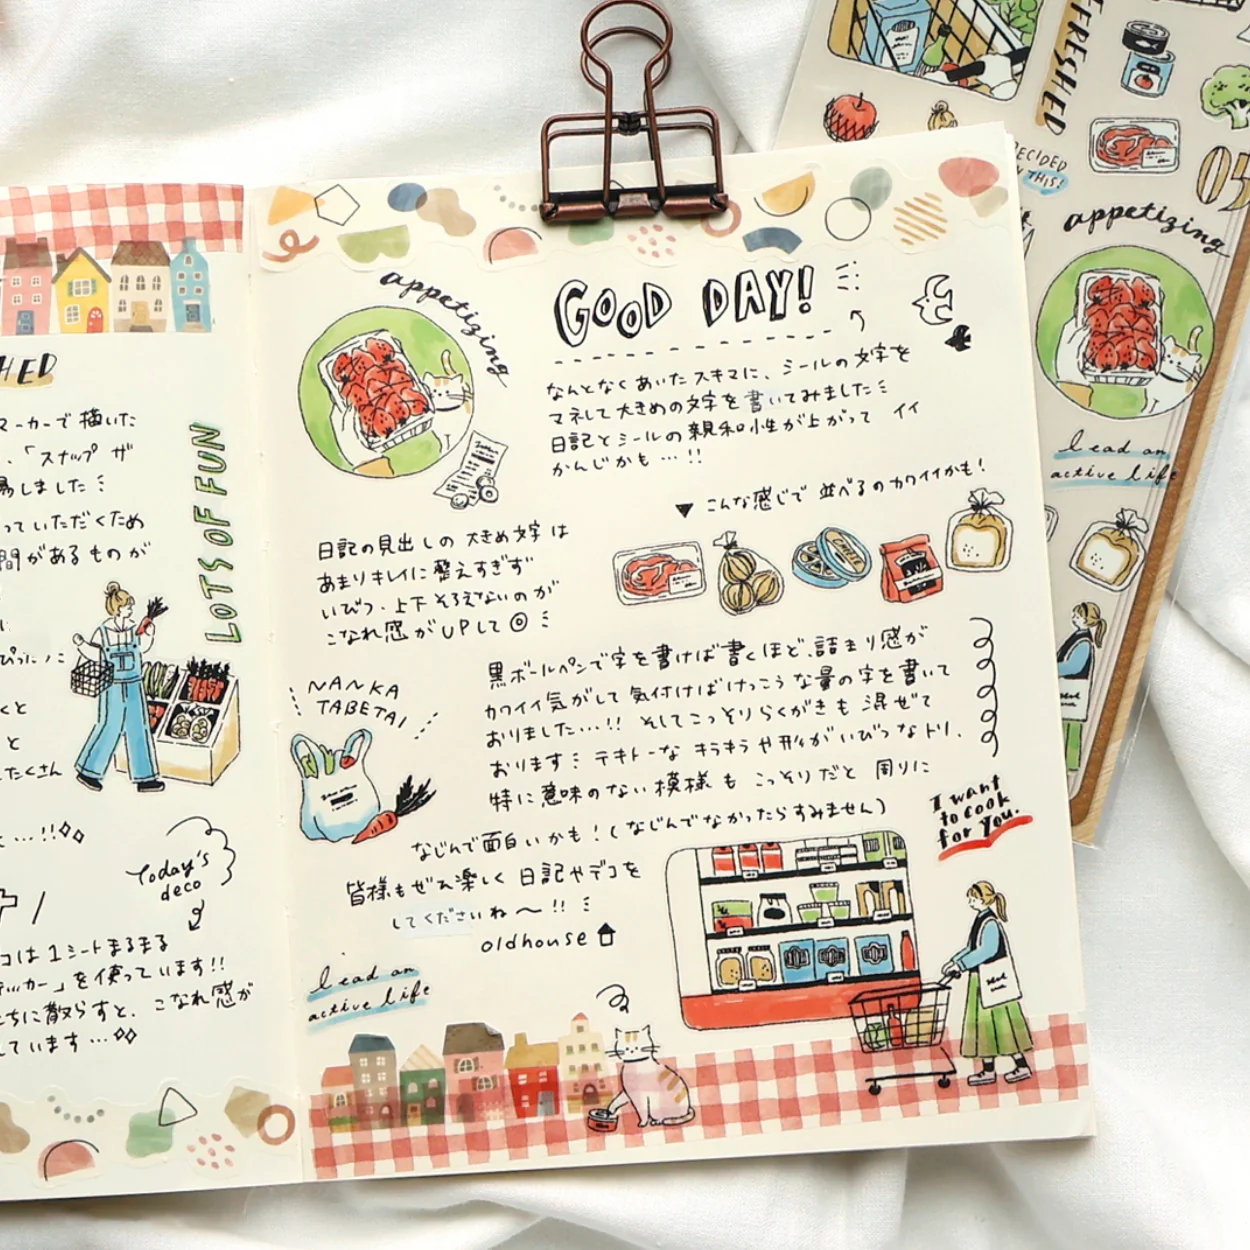 HED
マーカーで描いた
、「スナップ ザ
易しました
っていただくため
間があるものが
くと
と
たくさん
LOTS OF FUN
Today's
deco
コは1シートまるまる
テッカー」を使っています!!
ちに散らすと、こなれ感が
しています…
appetizing
GOOD DAY!
なんとなくあいたスキマに、シールの文字を
マネして大きめの文字を書いてみました
日記とシールの親和性が上がって イイ
かんじかも…!!
▼ こんな感じで 並べるのカワイイかも!
CHEESE
日記の見出しの 大きめ文字は
あまりキレイに整えすぎず
いびつ・上下そろえないのが
こなれ感がUPして◎
NANKA
TABETAI
黒ボールペンで字を書けば書くほど、詰まり感が
カワイイ気がして気付けばけっこうな量の字を書いて
おりました…!! そしてこっそりらくがきも混ぜて
おります テキトーなキラキラや形がいびつなトリ、
特に意味のない模様も こっそりだと 周りに
なじんで面白いかも!(なじんでなかったらすみません)
皆様もぜひ楽しく 日記やデコを
してくださいね〜!!
oldhouse
lead an
active life
I want
to cook
for you.
FRESHED
DECIDED
THIS!
appetizing
lead an
active life